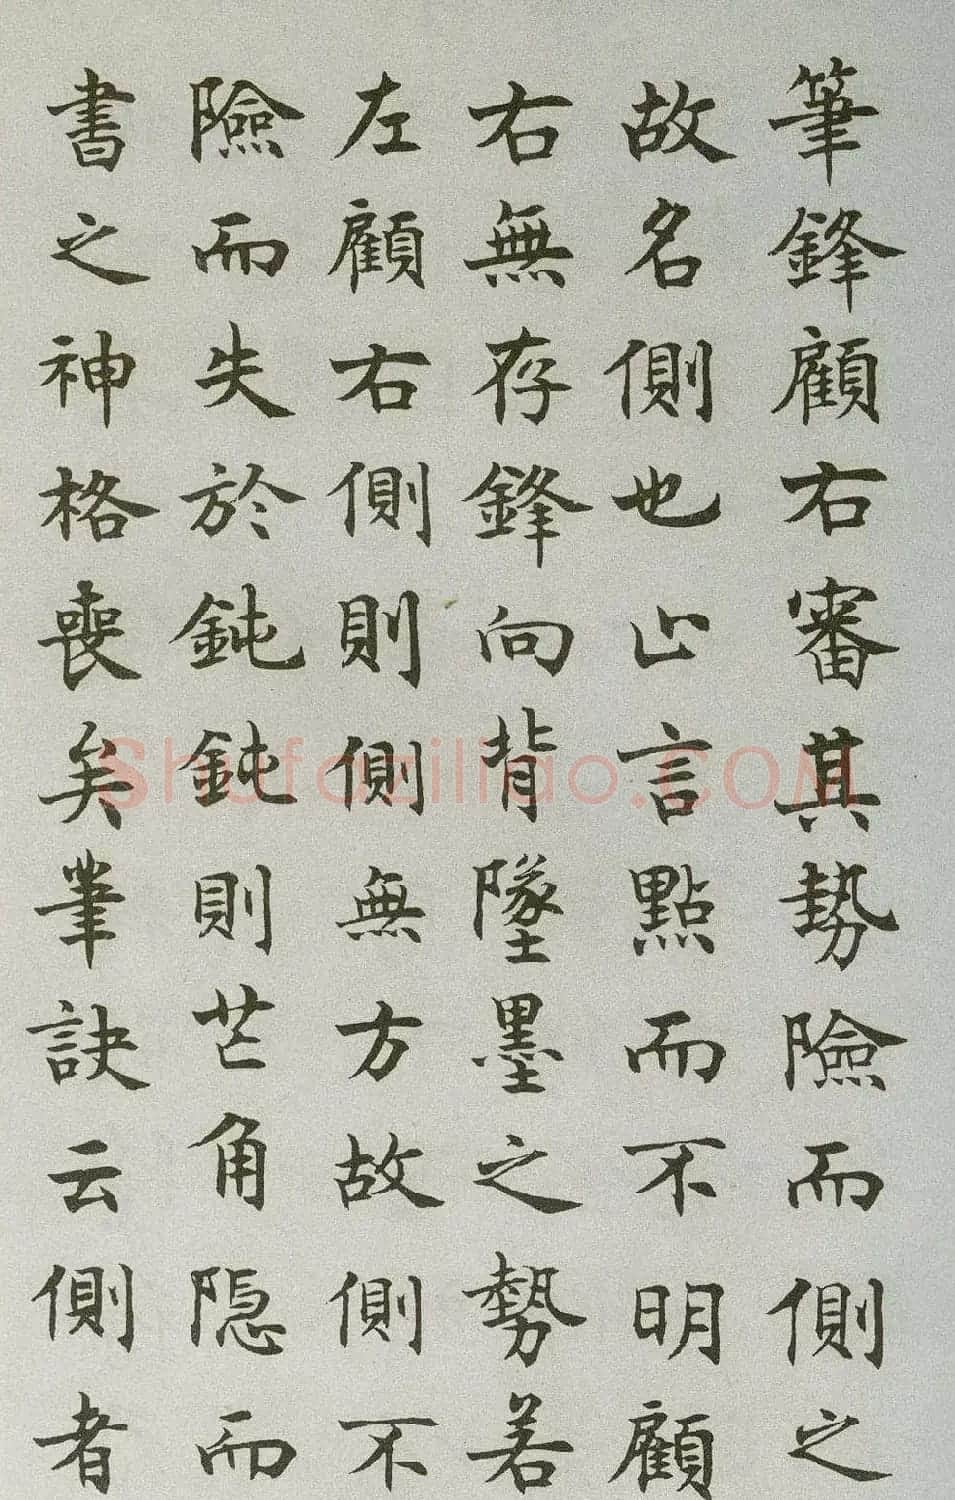 筆鋒顧右審其勢險而側之
故名側也止言點而不明顧
右無存鋒向背墜墨之勢若
左顧右側則側無方故側不
險而失於鈍鈍則芒角隐而
書之神格喪矣筆訣云側者
Shufaziliao.COM